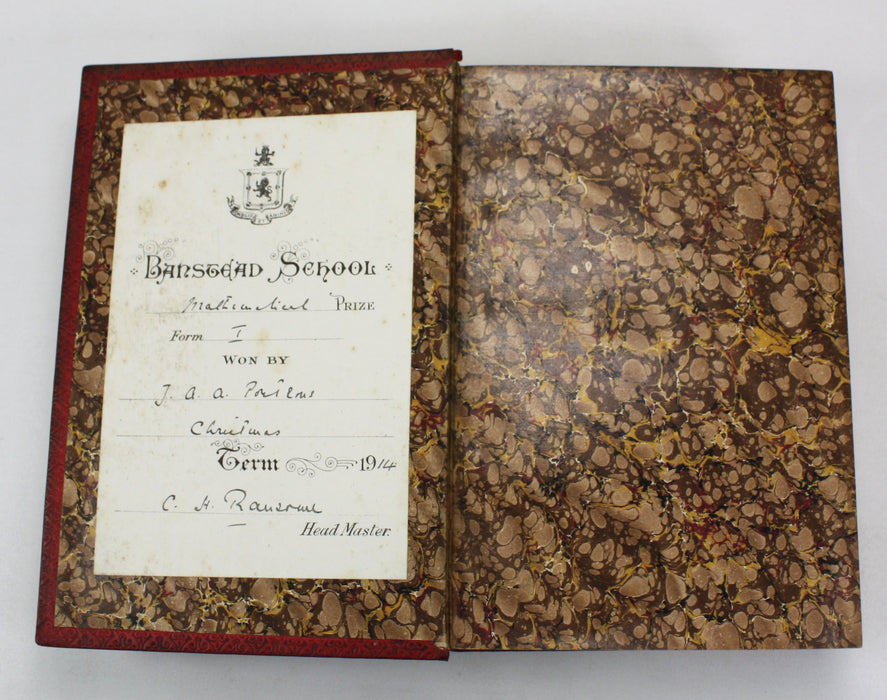 BANSTEAD SCHOOL
Mathematical PRIZE
Form I
WON BY
J. A. A. Porteous
Christmas
Term 1914
C. H. Ransome
Head Master.